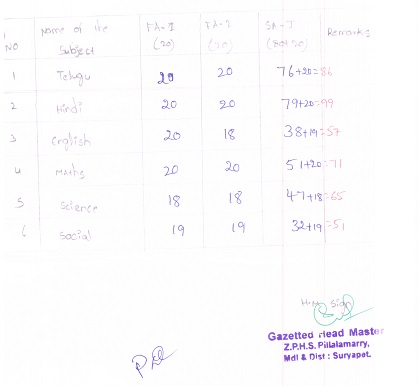 NO Name of the Subject FA-I (20) FA-2 (20) SA-I (80+20) Remarks
1 Telugu 20 20 76+20=86
2 Hindi 20 20 79+20=99
3 English 20 18 38+19=57
4 Maths 20 20 51+20=71
5 Science 18 18 47+18=65
6 Social 19 19 32+19=51
Sign
Gazetted Head Master
Z.P.H.S. Pillalamarry,
Mdl & Dist : Suryapet.